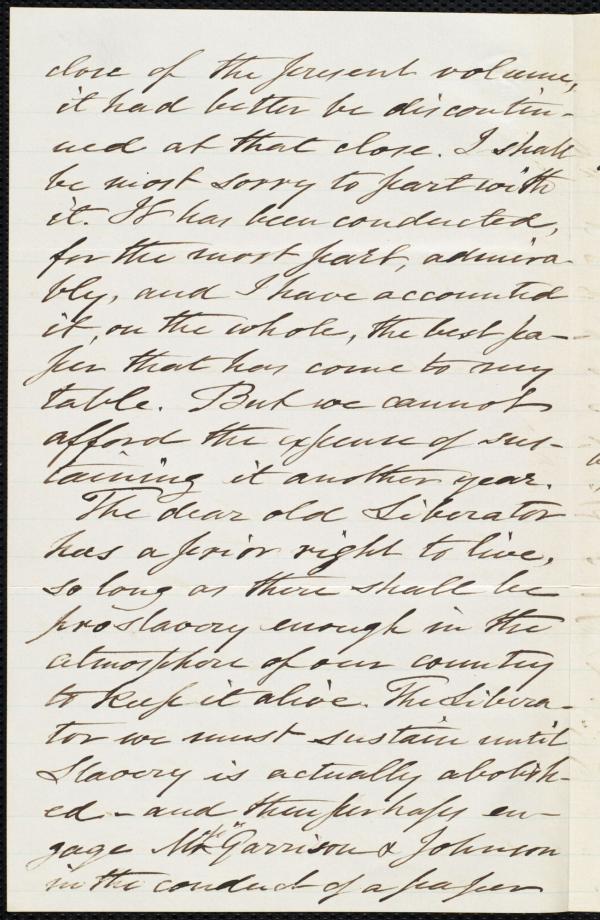 close of the present volume,
it had better be discontin-
ued at that close. I shall
be most sorry to part with
it. It has been conducted,
for the most part, admira-
bly, and I have accounted
it, on the whole, the best pa-
per that has come to my
table. But we cannot
afford the expense of sus-
taining it another year.
The dear old Liberator
has a prior right to live,
so long as there shall be
proslavery enough in the
atmosphere of our country
to keep it alive. The Libera-
tor we must sustain until
Slavery is actually abolish-
ed - and then perhaps en-
gage Garrison & Johnson
in the conduct of a paper